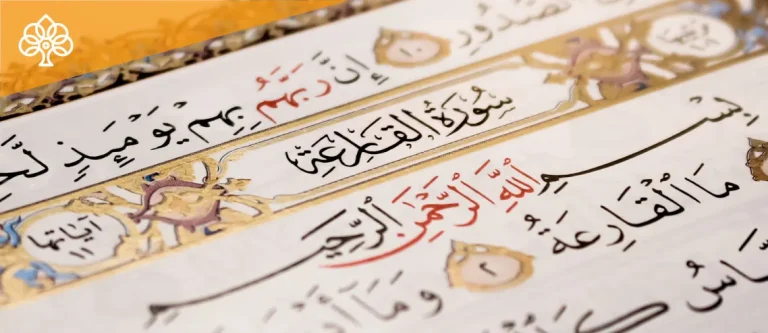 الصُّدُورِ ١٠ إِنَّ رَبَّهُمْ بِهِمْ يَوْمَئِذٍ
سُورَةُ الْقَارِعَةِ آيَاتُهَا ١١
بِسْمِ اللَّهِ الرَّحْمَٰنِ الرَّحِيمِ
مَا الْقَارِعَةُ ٢ وَمَا